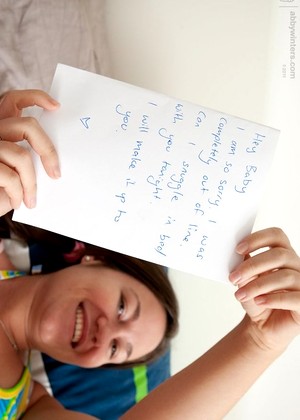 Hey Baby
I am so sorry I was
completely out of line.
Can I snuggle in bed
with you tonight.
I will make it up to
you
abbywinters.com